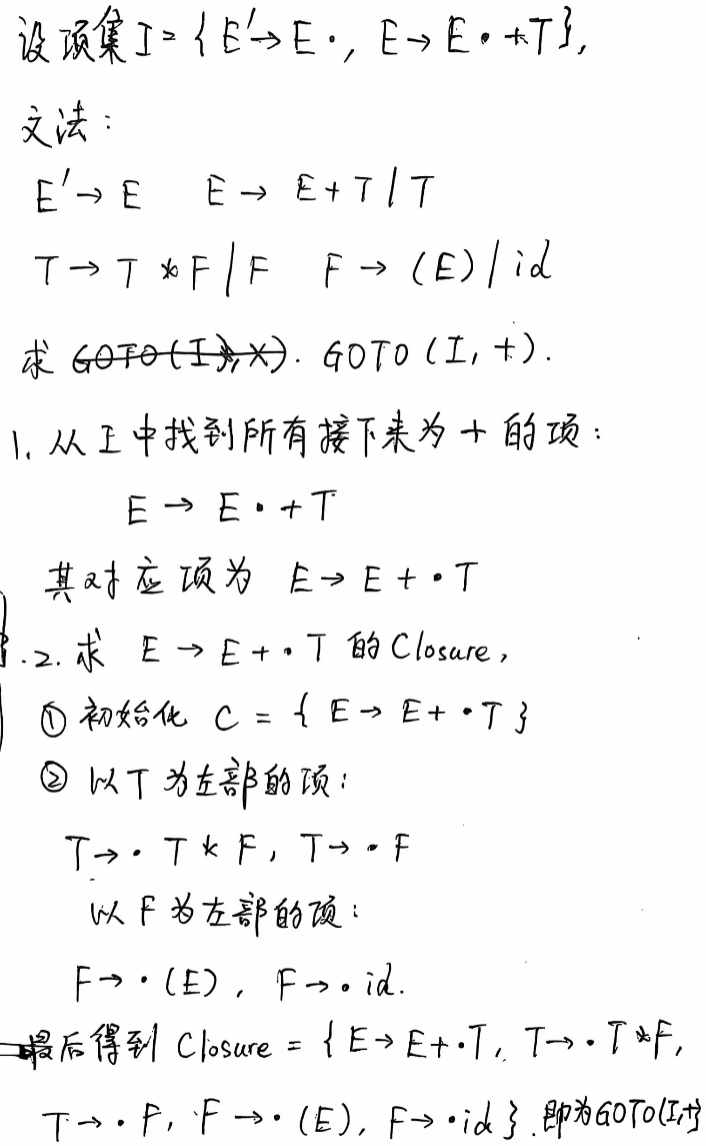 设项集I={E'→E·, E→E·+T},
文法:
E'→E E→E+T|T
T→T*F|F F→(E)|id
求 GOTO(I,X). GOTO(I,+).
1. 从I中找到所有接下来为+的项:
E→E·+T
其对应项为 E→E+·T
2. 求 E→E+·T 的Closure,
① 初始化 C={E→E+·T}
② 以T为左部的项:
T→·T*F, T→·F
以F为左部的项:
F→·(E), F→·id.
最后得到 Closure={E→E+·T, T→·T*F,
T→·F, F→·(E), F→·id}. 即为GOTO(I,+)